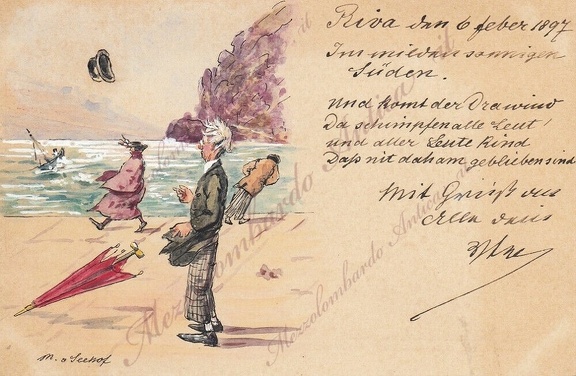 Riva den 6 feber 1897
Im milden sonnigen
Süden.
Und komt der Drawind
Da schimpfen alle Leut'
und aller Leute Kind
Daß nit daham geblieben sind
Mit Grüß an
Alle dein
M. v Seehof
Mezzolombardo Antica
Mezzolombardo Antica